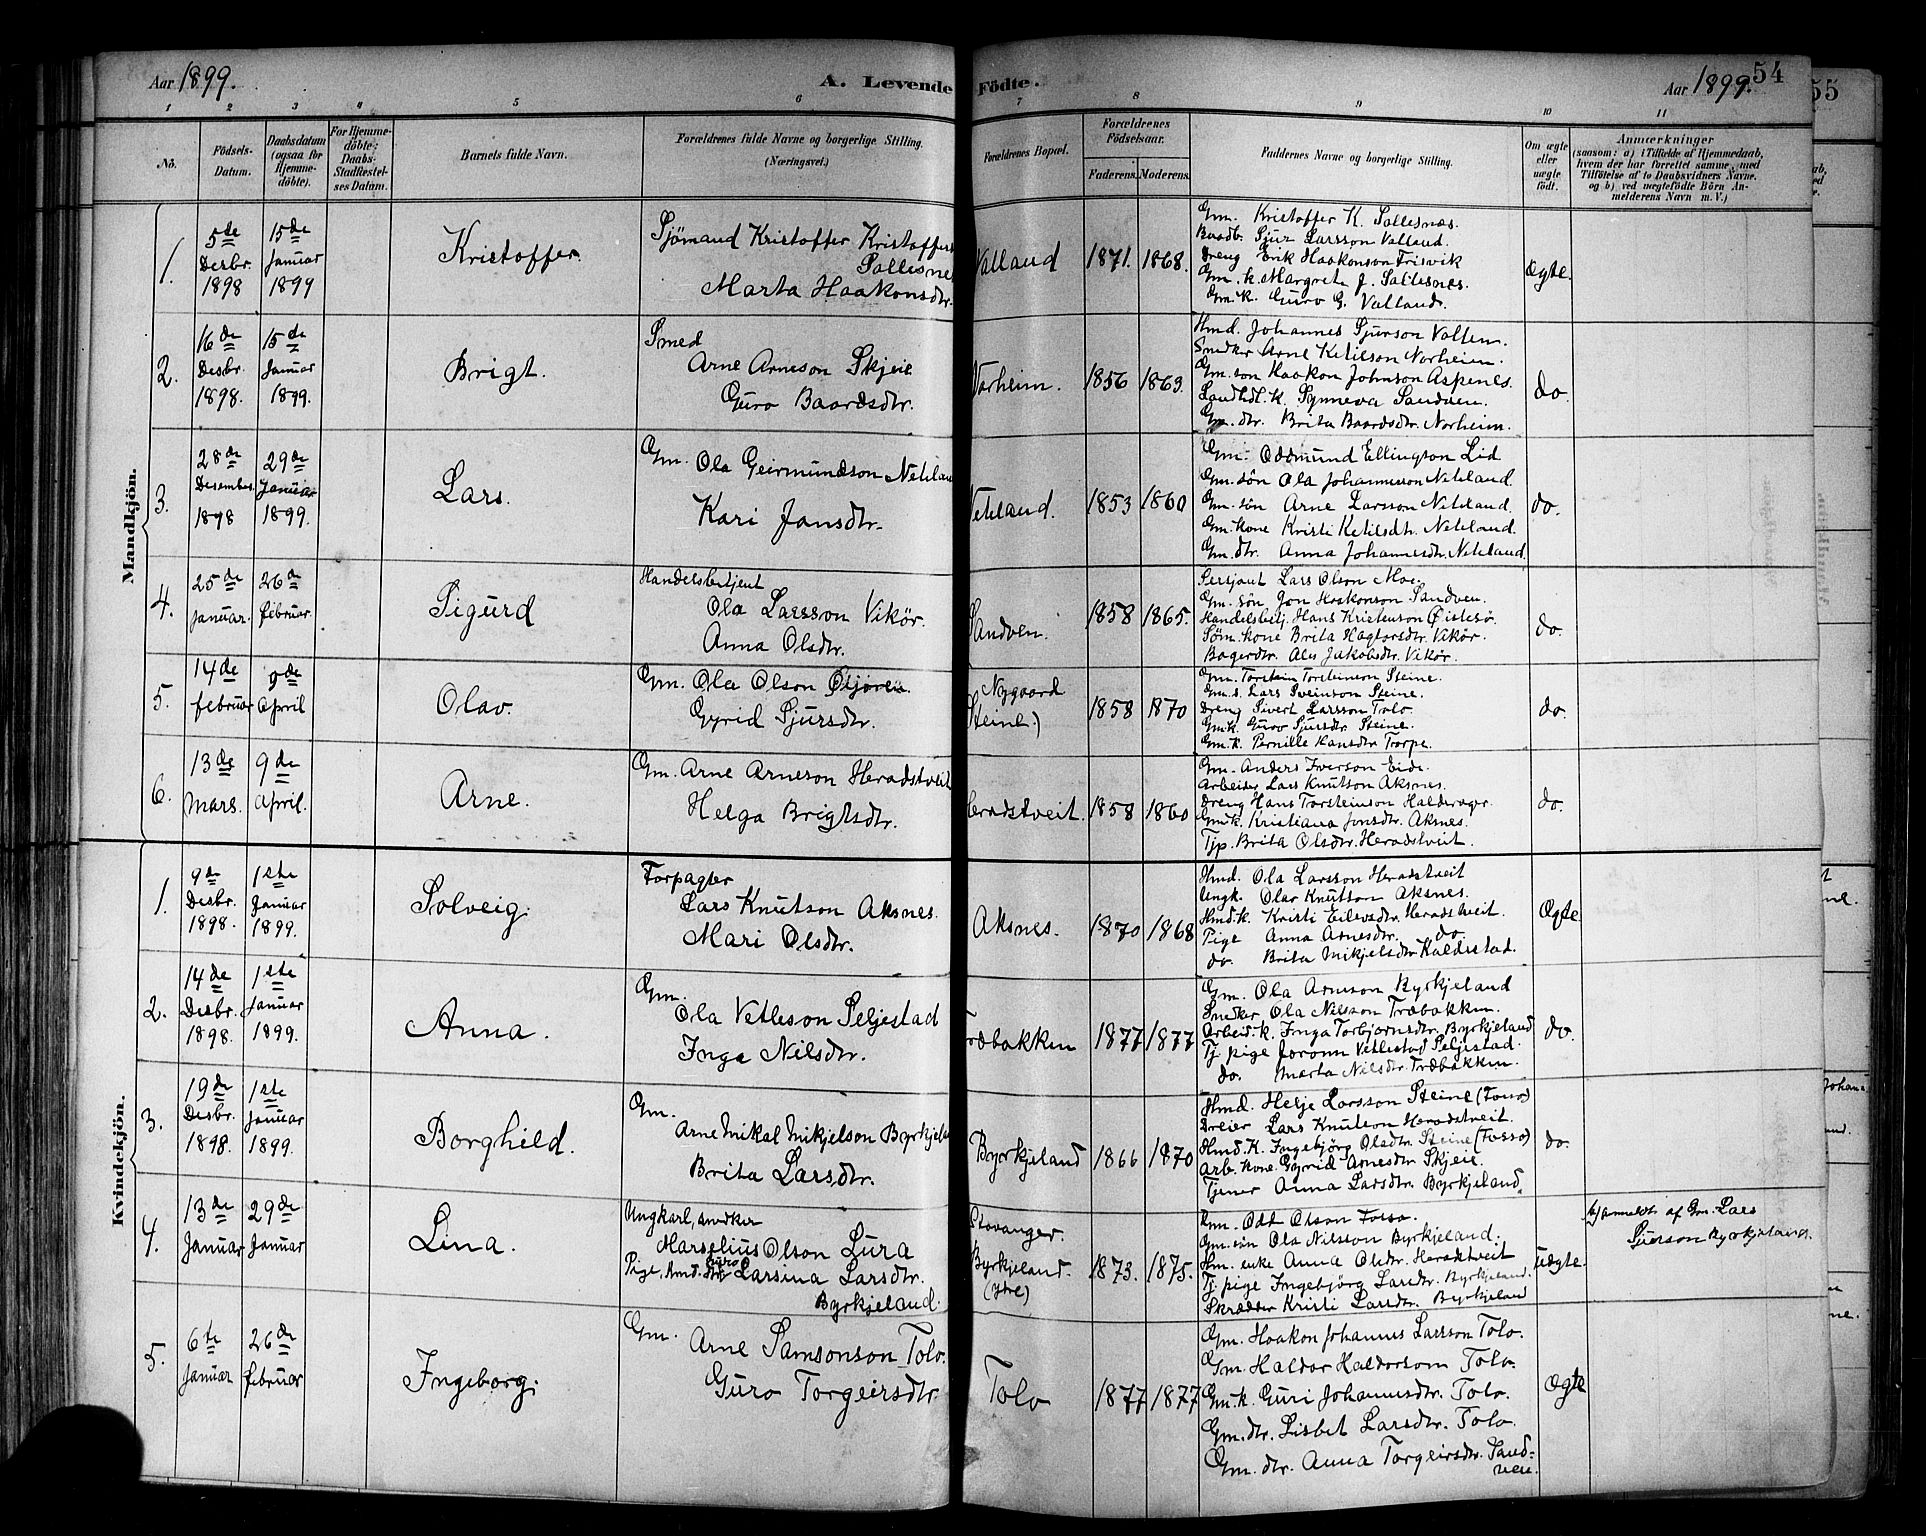 Aar 1899.
A. Levende Födte.
Aar 1899.
54
55
1 2 3 4 5 6 7 8 9 10 11
No.
Födsels-
Datum.
Daabsdatum
(ogsaa for
Hjemme-
döbte).
For Hjemme-
döbte;
Daabs-
Stadfestel-
ses Datum.
Barnets fulde Navn.
Forældrenes fulde Navne og borgerlige Stilling.
(Næringsvei.)
Forældrenes Bopæl.
Forældrenes
Födselsaar.
Faderens. Moderens.
Faddernes Navne og borgerlige Stilling.
Om ægte
eller
uægte
födt.
Anmærkninger
(saasom: a) i Tilfælde af Hjemmedaab,
hvem der har forrettet samme, med
Tilföielse af to Daabsvidners Navne.
og b) ved uægtefödte Börn An-
melderens Navn m. V.)
Mandkjön.
1.
5te
Desbr.
1898
15de
Januar
1899
Kristoffer
Sjömand Kristoffer Kristoffers
Sallesnes
Marta Haakonsdtr.
Valland
1871. 1868.
Gm. Kristoffer K. Sallesnæs.
Baadb. Sjur Larsson Valland.
Dreng Erik Haakonson Trisvik
Gm. k. Margreta J. Sallesnæs.
Gm. k. Guro G. Valland.
ægte.
2.
16de
Desbr.
1898.
15de
Januar
1899.
Brigt.
Smed
Arne Arneson Skjeie
Guro Baardsdtr.
Norheim.
1856 1863.
Hmd. Johannes Sjurson Valten.
Snedker Arne Ketilson Norheim.
Gm. son Haakon Johnson Aspenes.
Landhdl. k. Synneva Sandven.
Gm. dtr. Brita Baardsdtr. Norheim.
do.
3.
28de
Desember
1898
29de
Januar
1899.
Lars.
Gm. Ola Geirmundson Neteland
Kari Jonsdtr.
Neteland.
1853 1860
Gm. Oddmund Ellington Lid
Gm. sön Ola Johannesson Neteland.
Gm. sön Arne Larsson Neteland.
Gm. kone Kristi Ketilsdtr. Neteland.
Gm. dtr. Anna Johannesdtr. Neteland.
do.
4.
25de
Januar.
26de
februar.
Sigurd
Handelsbetjent
Ola Larsson Vikör.
Anna Olsdtr.
Sandven.
1858 1865.
Sersjant Lars Olson Moe.
Gm. sön Jon Haakonson Sandven.
Handelsbetj. Hans Kristenson Öistesö.
Söm. kone Brita Hagtorsdtr. Vikör.
Bagerdtr. Ales Jakobsdtr. Vikör.
do.
5.
14de
februar
9de
April
Olav.
Gm. Ola Olson
Gyrid Sjursdtr.
Nygaard
(Steine)
1858 1870
Gm. Torstein Torsteinson Steine.
Gm. s. Lars Sveinson Steine.
Dreng Sivert Larsson Tolo
Gm. k. Guro Sjursdtr Steine.
Gm. k. Pernille Hansdtr Torpe.
do.
6.
13de
Mars.
9de
April.
Arne.
Gm. Arne Arneson Heradstveit
Helga Brigtsdtr.
Heradstveit.
1858 1860
Gm. Anders Iverson Eide
Arbeider Lars Knutson Aksnes.
Dreng Hans Torsteinson Halderager.
Gm. k. Kristiana Jonsdtr. Aksnes.
Tjp. Brita Olsdtr. Heradstveit.
do.
Kvindekjön.
1.
9de
Desbr.
1898.
1ste
Januar
1899.
Solveig.
Forpagter
Lars Knutson Aksnes.
Mari Olsdtr.
Aksnes.
1870 1868
Hmd. Ola Larsson Heradstveit
Ungk. Olav Knutson Aksnes.
Hmd. k. Kristi Eilevsdtr. Heradstveit.
Pige Anna Arnesdtr. do.
do. Brita Mikjelsdtr Kaldestad.
Ægte
2.
14de
Desbr.
1898.
1ste
Januar
1899.
Anna.
Gm.
Ola Vetleson Seljestad
Inga Nilsdtr.
Træbakken
1877 1877
Gm. Ola Arneson Byrkjeland
Snedker Ola Nilsson Træbakken.
Arbeid. k. Inga Torbjørnsdtr. Byrkjeland
Tj. pige Joronn Vetlestad Seljestad.
do. Marta Nilsdtr. Træbakken.
do.
3.
19de
Desbr.
1898.
1ste
Januar
1899.
Borghild.
Gm.
Arne Mikal Mikjelson Byrkjeland
Brita Larsdtr.
Byrkjeland
1866 1870
Hmd. Helje Larsson Steine (Fosso)
Dreier Lars Knutson Heradstveit
Hmd. K. Ingebjörg Olsdtr. Steine (Fosso)
Arb. kone Gyrid Arnesdtr. Skjeie.
Tjener Anna Larsdtr. Byrkjeland.
do.
4.
13de
Januar
29de
Januar
Lina.
Ungkarl, snedker
Marselius Olson Lura
Pige, Hmd. dtr Guro Larsina Larsdtr.
Byrkjeland.
Stavanger.
Byrkjeland.
(ytre)
1873. 1875.
Gm. Odd Olson Fosso.
Gm. sön Ola Nilsson Byrkjeland.
Hm. enke Anna Olsdtr. Heradstveit
Tj. pige Ingebjörg Larsdtr. Byrkjeland.
Skrædder Kristi Larsdtr. Byrkjeland
Uægte.
b) anmeldt af Gm. Lars
Sjurson Byrkjeland.
5.
6te
Januar
26de
februar
Ingeborg.
Gm. Arne Samsonson Tolo.
Guro Torgeirsdtr.
Tolo
1877 1877
Gm. Haakon Johannes Larsson Tolo.
Gm. Haldor Haldorsom Tolo.
Gm. k. Guri Johannesdtr. Tolo.
Gm. dtr. Lisbet Larsdtr. Tolo.
Gm. dtr. Anna Torgeirsdtr. Sand-
ven.
Ægte